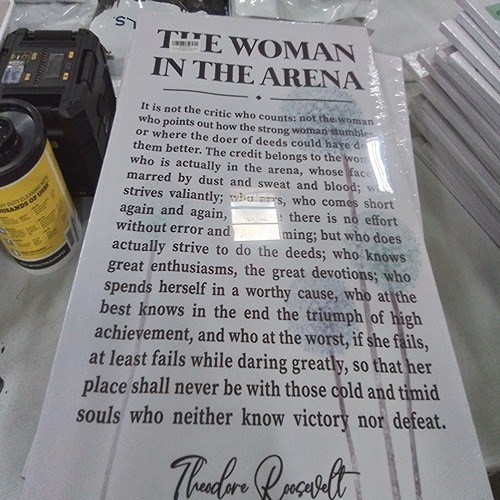 LS.
THE WOMAN
IN THE ARENA
It is not the critic who counts: not the woman
who points out how the strong woman stumbles
or where the doer of deeds could have
them better. The credit belongs to the
who is actually in the arena, whose face
marred by dust and sweat and blood;
strives valiantly; who errs, who comes short
again and again, there is no effort
without error and but who does
actually strive to do the deeds; who knows
great enthusiasms, the great devotions; who
spends herself in a worthy cause, who at the
best knows in the end the triumph of high
achievement, and who at the worst, if she fails,
at least fails while daring greatly, so that her
place shall never be with those cold and timid
souls who neither know victory nor defeat.
Theodore Roosevelt